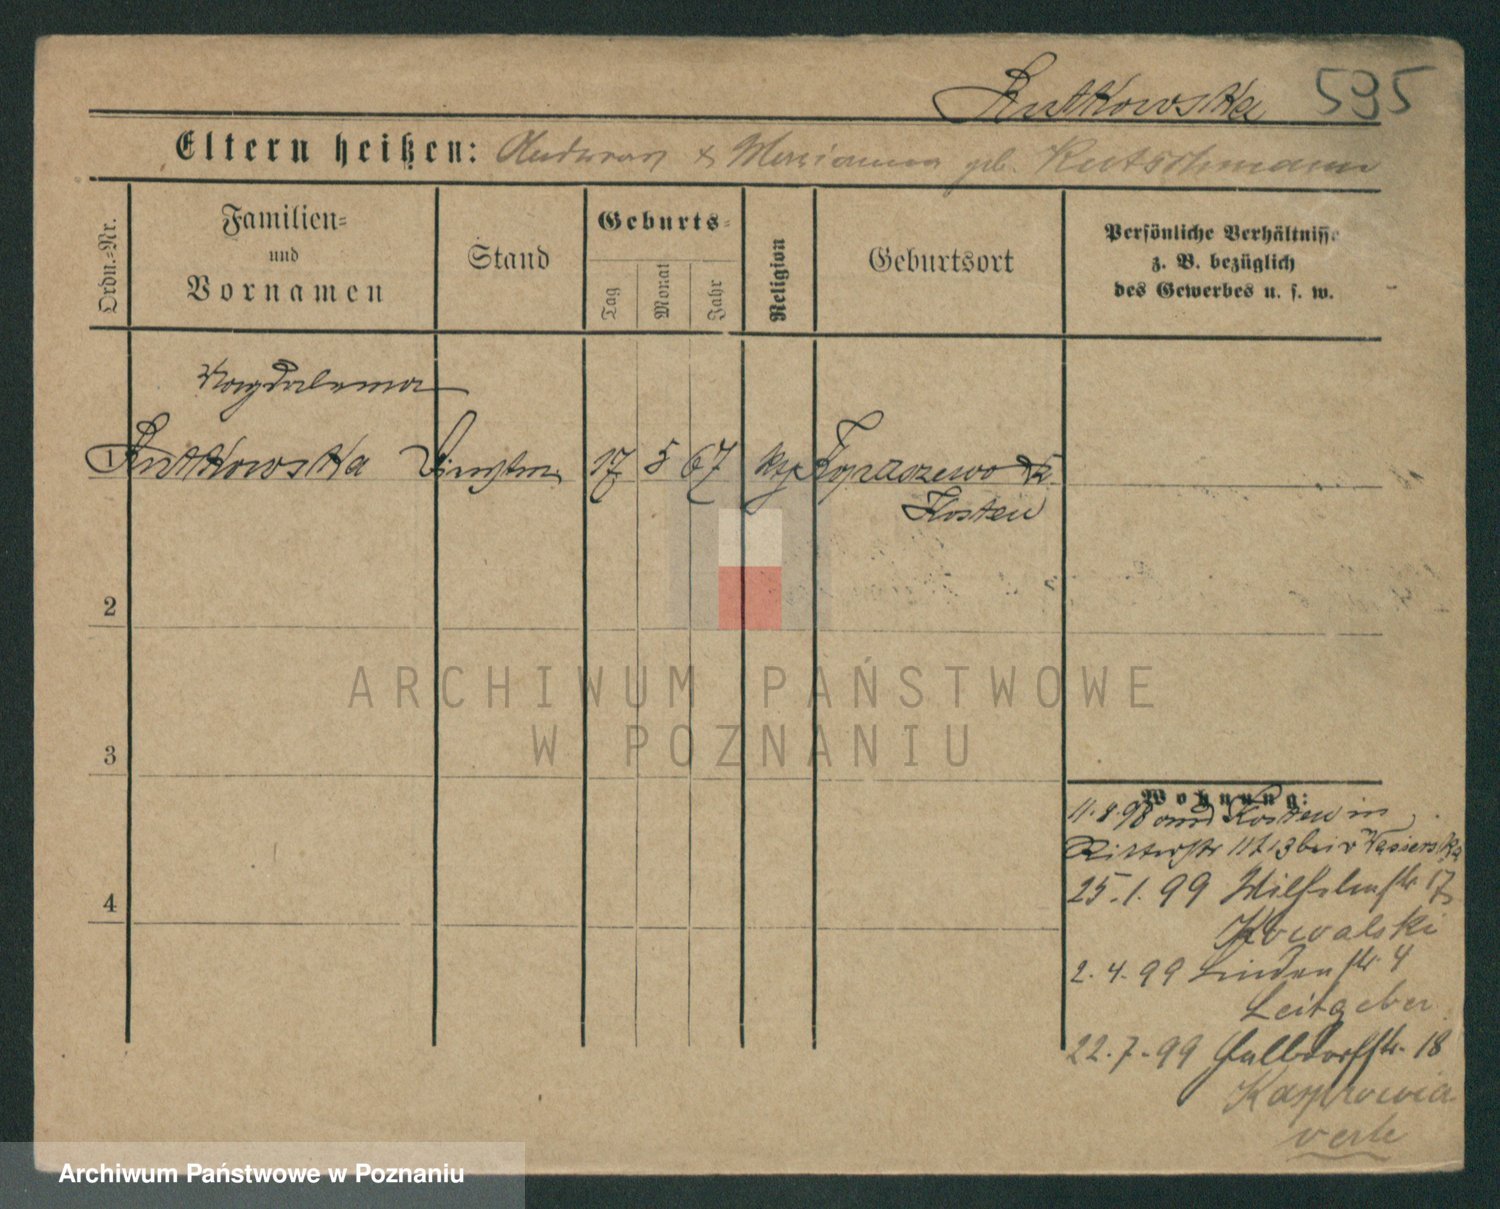 Rutkowska 595
Eltern heißen: Andreas & Marianna geb. Rutschmann
Ordn.-Nr.
Familien-
und
Vornamen
Stand
Geburts-
Tag
Monat
Jahr
Religion
Geburtsort
Persönliche Verhältnisse
z. B. bezüglich
des Gewerbes u. s. w.
Magdalena
1 Rutkowska 17 5 67 kth
Kosten
2
3
4
ARCHIWUM PAŃSTWOWE
W POZNANIU
Wohnung:
11.8.98 aus Kosten in
Ritterstr 11 bei
25.1.99 Wilhelmstr. 17
Kowalski
2.4.99 Lindenstr. 4
Leitgeber
22.7.99 18
Archiwum Państwowe w Poznaniu